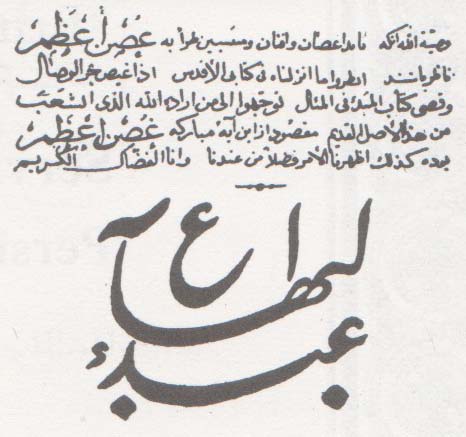 وصیّة الله آنکه باید اغصان و افنان و منتسبین طرّاً به غصن اعظم
ناظر باشند انظروا ما انزلناه فی کتابی الأقدس اذا غیض بحر الوصال
و قضی کتاب المبدء فی المآل توجهوا الی من اراده الله الذی انشعب
من هذا الأصل القدیم مقصود از این آیه مبارکه غصن اعظم
بوده کذلک اظهرنا الأمر فضلاً من عندنا و انا الفضّال الکریم
عبدالبهاء